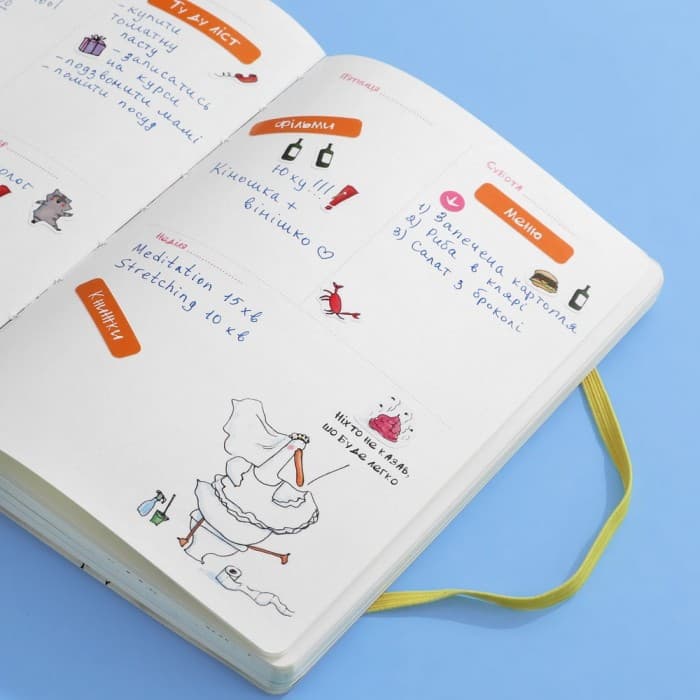 Ту ду ліст
- купити
томатну
пасту
- записатись
на курси
- подзвонити мамі
- помити посуд
П'ятниця
Фільми
Юху!!!
Кіношка +
вінішко ♡
Субота
Меню
1) Запечена картопля
2) Риба в клярі
3) Салат з броколі
Неділя
Meditation 15 хв
Stretching 10 хв
Книжки
Ніхто не казав,
шо буде легко